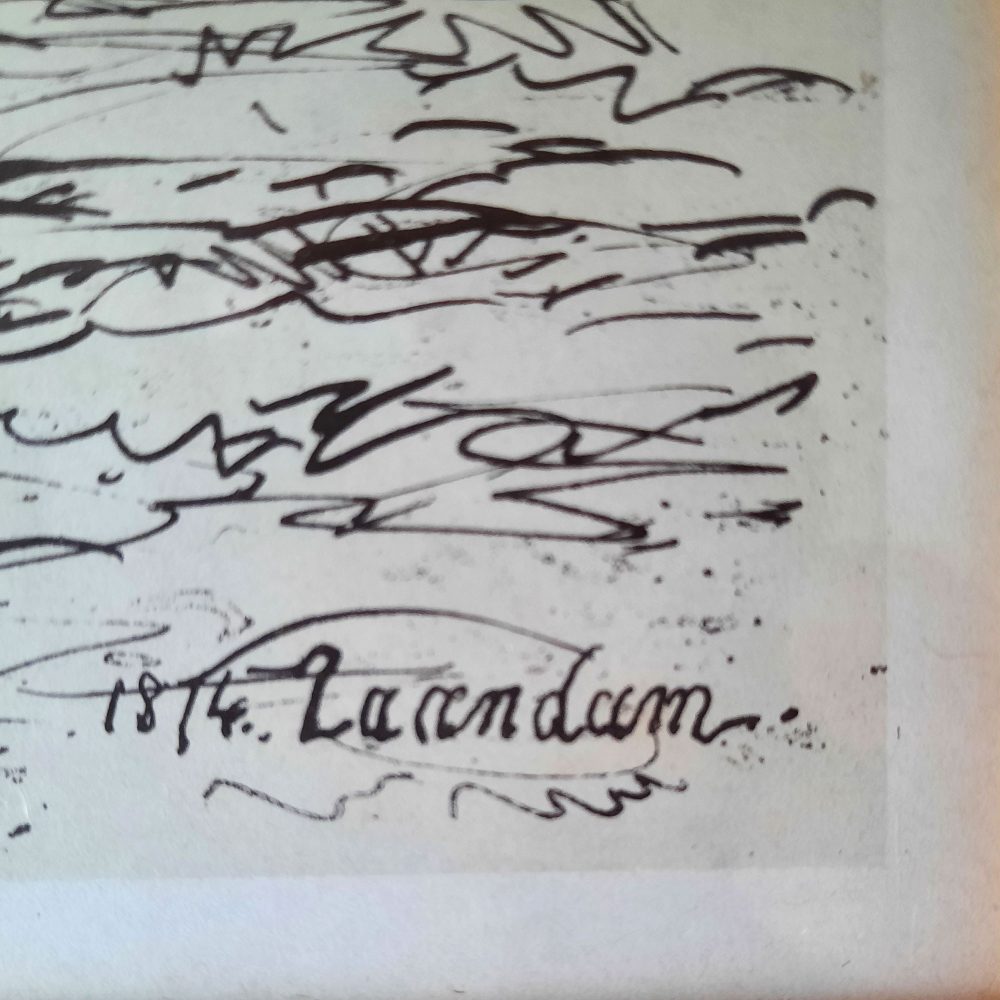 1874. Zaandam.